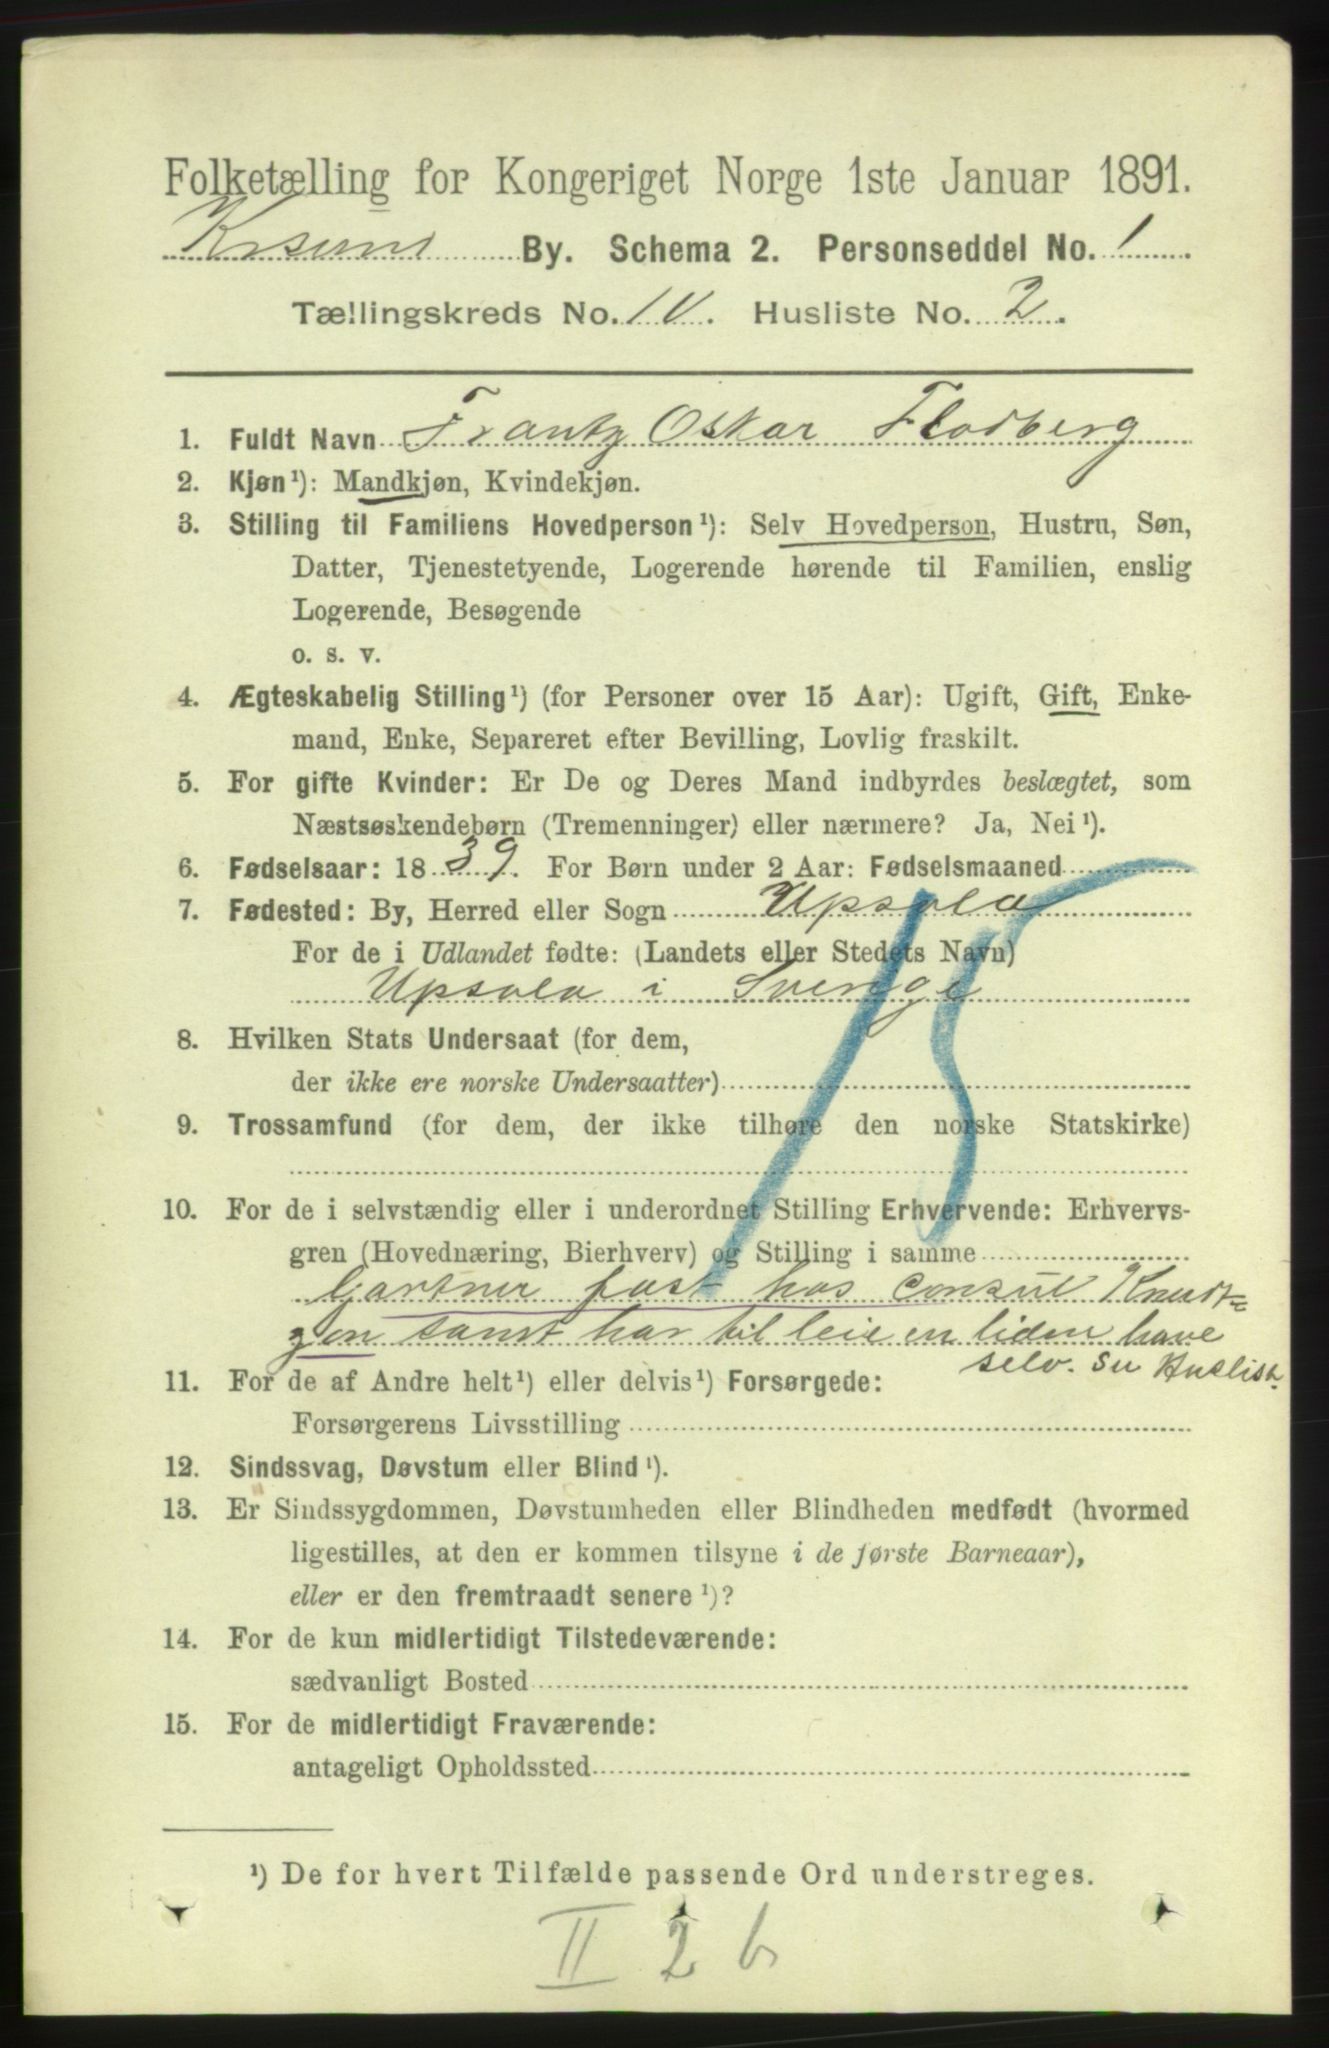 Folketælling for Kongeriget Norge 1ste Januar 1891.
Krsund By. Schema 2. Personseddel No. 1
Tællingskreds No. 10. Husliste No. 2.
1. Fuldt Navn Frantz Oskar Flodberg
2. Kjøn¹): Mandkjøn, Kvindekjøn.
3. Stilling til Familiens Hovedperson¹): Selv Hovedperson, Hustru, Søn,
Datter, Tjenestetyende, Logerende hørende til Familien, enslig
Logerende, Besøgende
o. s. v.
4. Ægteskabelig Stilling¹) (for Personer over 15 Aar): Ugift, Gift, Enke-
mand, Enke, Separeret efter Bevilling, Lovlig fraskilt.
5. For gifte Kvinder: Er De og Deres Mand indbyrdes beslægtet, som
Næstsøskendebørn (Tremenninger) eller nærmere? Ja, Nei¹).
6. Fødselsaar: 1839. For Børn under 2 Aar: Fødselsmaaned
7. Fødested: By, Herred eller Sogn Upsala
For de i Udlandet fødte: (Landets eller Stedets Navn)
Upsala i Sverige
15
8. Hvilken Stats Undersaat (for dem,
der ikke ere norske Undersaatter)
9. Trossamfund (for dem, der ikke tilhøre den norske Statskirke)
10. For de i selvstændig eller i underordnet Stilling Erhvervende: Erhvervs-
gren (Hovednæring, Bierhverv) og Stilling i samme
Gartner fast hos Consul Knudt=
zon samt har til leie en liden have
selv. se Huslist.
11. For de af Andre helt¹) eller delvis¹) Forsørgede:
Forsørgerens Livsstilling
12. Sindssvag, Døvstum eller Blind¹).
13. Er Sindssygdommen, Døvstumheden eller Blindheden medfødt (hvormed
ligestilles, at den er kommen tilsyne i de første Barneaar),
eller er den fremtraadt senere¹)?
14. For de kun midlertidigt Tilstedeværende:
sædvanligt Bosted
15. For de midlertidigt Fraværende:
antageligt Opholdssted
¹) De for hvert Tilfælde passende Ord understreges.
II 2 b